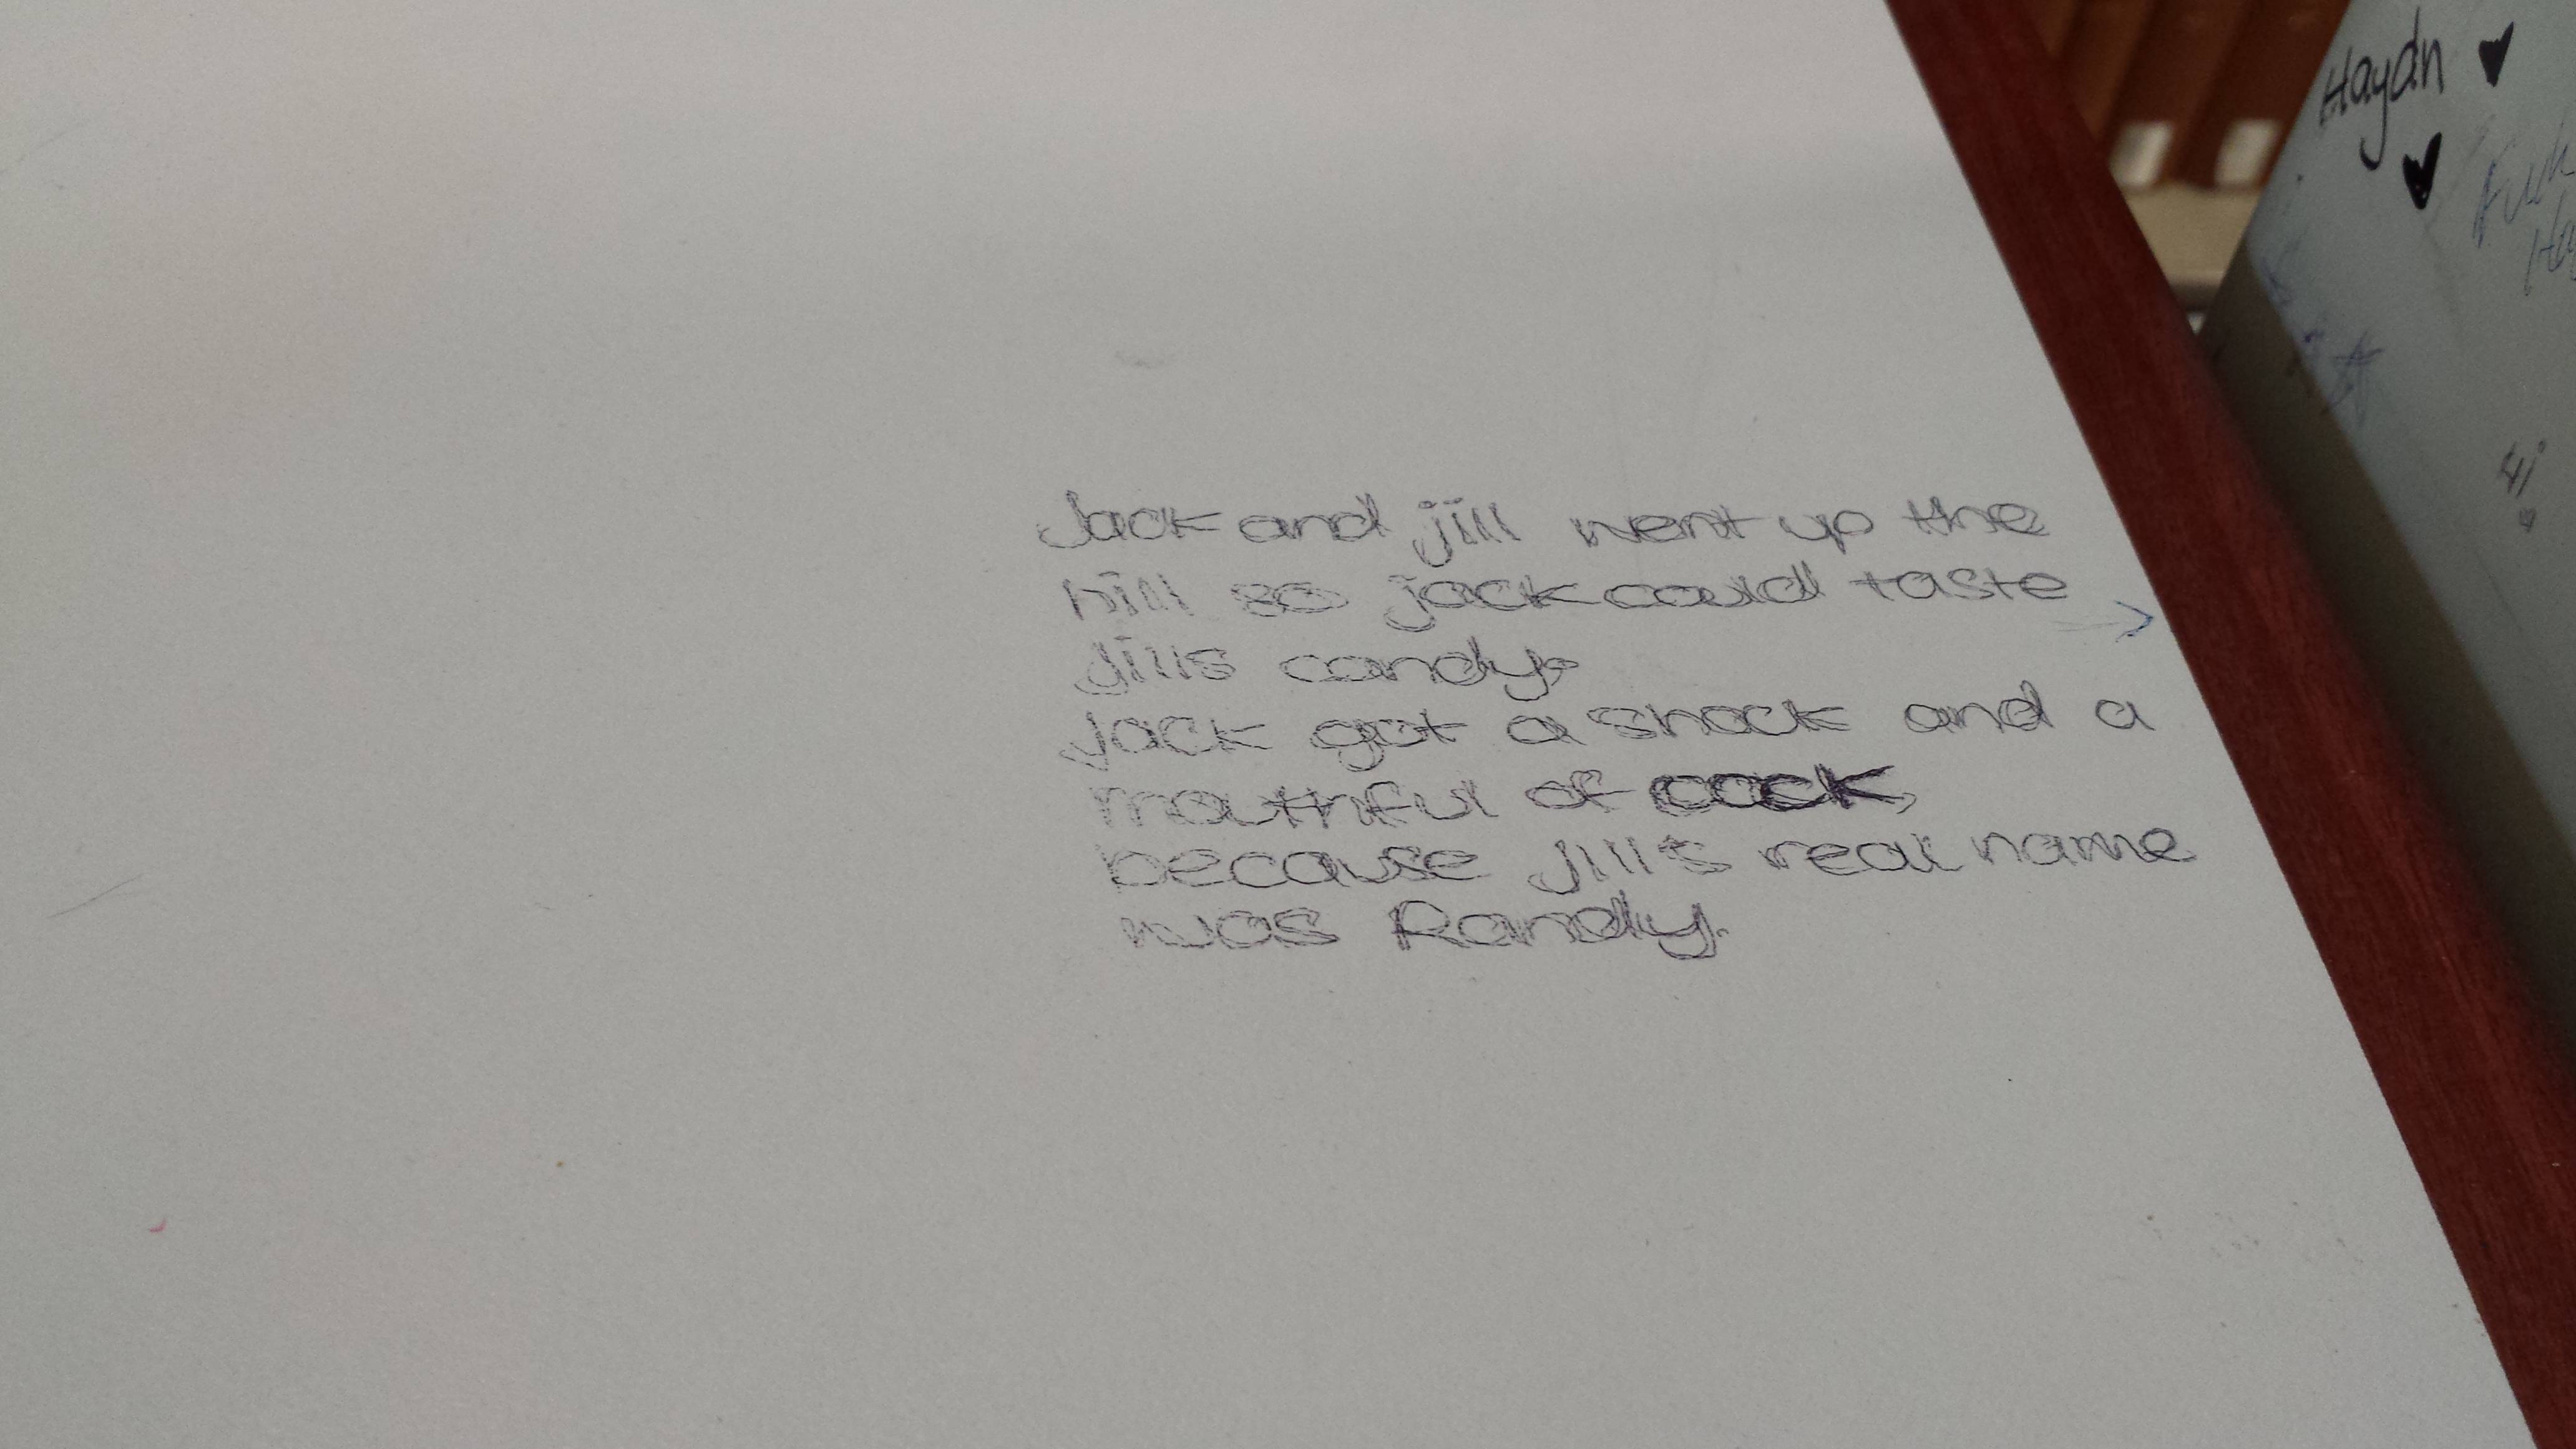 Jack and jill went up the
hill so jack could taste
Jill's candy.
Jack got a shock and a
mouthful of cock,
because Jill's real name
was Randy.
Haydn
Hi